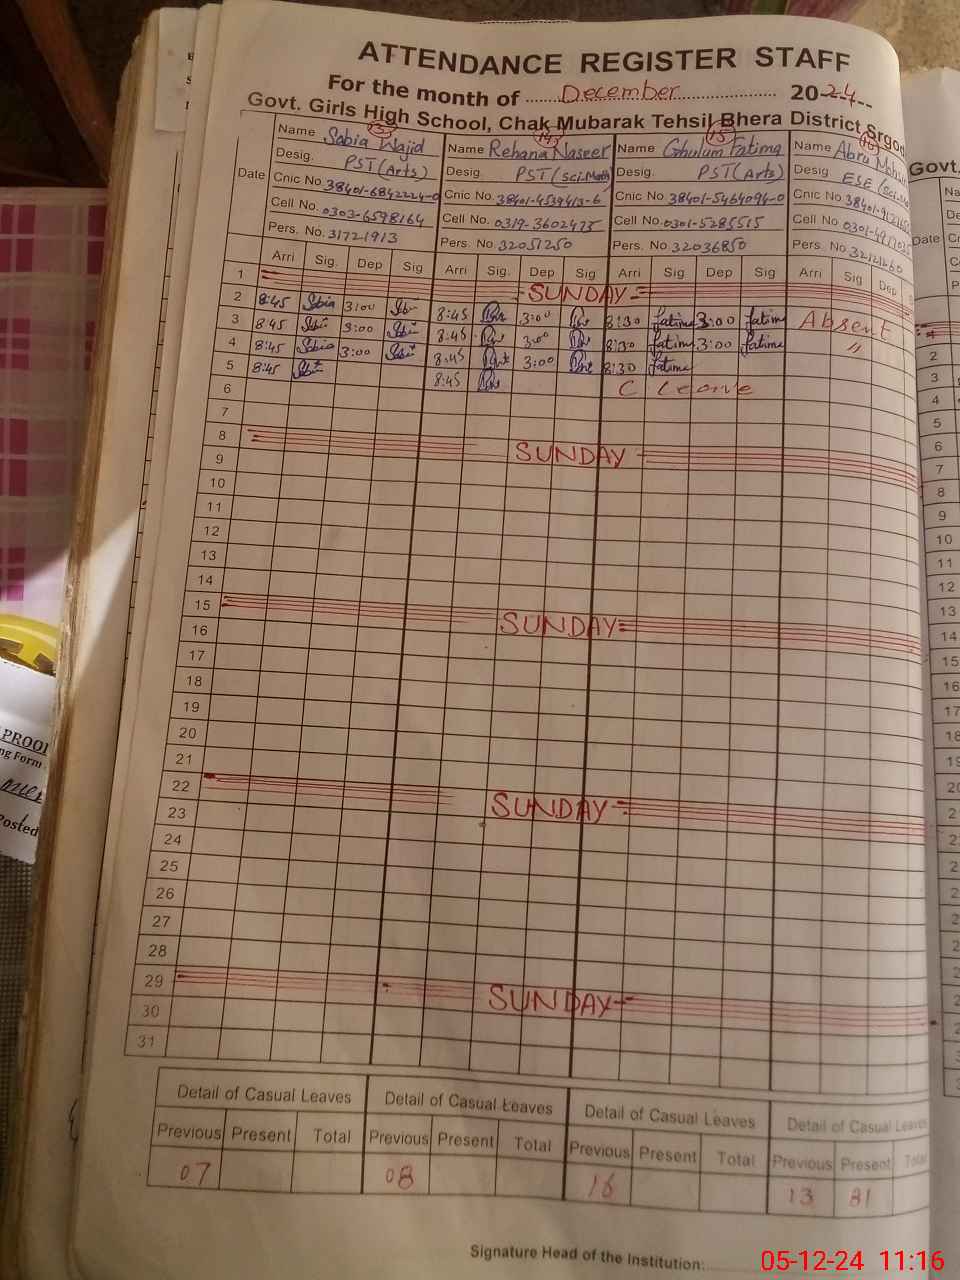 ATTENDANCE REGISTER STAFF
For the month of December 2024
Govt. Girls High School, Chak Mubarak Tehsil Bhera District
Date
Name Sabia Wajid
Desig. PST (Arts)
Cnic No 38401-6842224-0
Cell No. 0303-6598164
Pers. No. 31721913
Name Rehana Naseer
Desig. PST (Sci-Math)
Cnic No. 38401-4539413-6
Cell No. 0319-3602475
Pers. No. 32051250
15
Name Ghulum Fatima
Desig. PST (Arts)
Cnic No. 38401-5464094-0
Cell No. 0301-5285515
Pers. No. 32036850
16
Name Abru
Desig ESE
Cnic No
Cell No
Pers. No. 32121260
Arri Sig. Dep Sig Arri Sig. Dep Sig Arri Sig Dep Sig Arri Sig Dep
1 SUNDAY
2 8:45 Sabia 3:00 8:45 3:00 8:30 Fatima 3:00 Fatima Absent
3 8:45 3:00 8:45 3:00 8:30 Fatima 3:00 Fatima "
4 8:45 Sabia 3:00 8:45 3:00 8:30 Fatima
5 8:45 8:45 C Leave
6
7
8 SUNDAY
9
10
11
12
13
14
15 SUNDAY
16
17
18
19
20
21
22 SUNDAY
23
24
25
26
27
28
29 SUNDAY
30
31
Detail of Casual Leaves Detail of Casual Leaves Detail of Casual Leaves Detail of Casual Leaves
Previous Present Total Previous Present Total Previous Present Total Previous Present Total
07 08 16 13 81
Signature Head of the Institution:
Govt.
Date
2
3
4
5
6
7
8
9
10
11
12
13
14
15
16
17
18
PROOF
ng Form
Posted
05-12-24 11:16